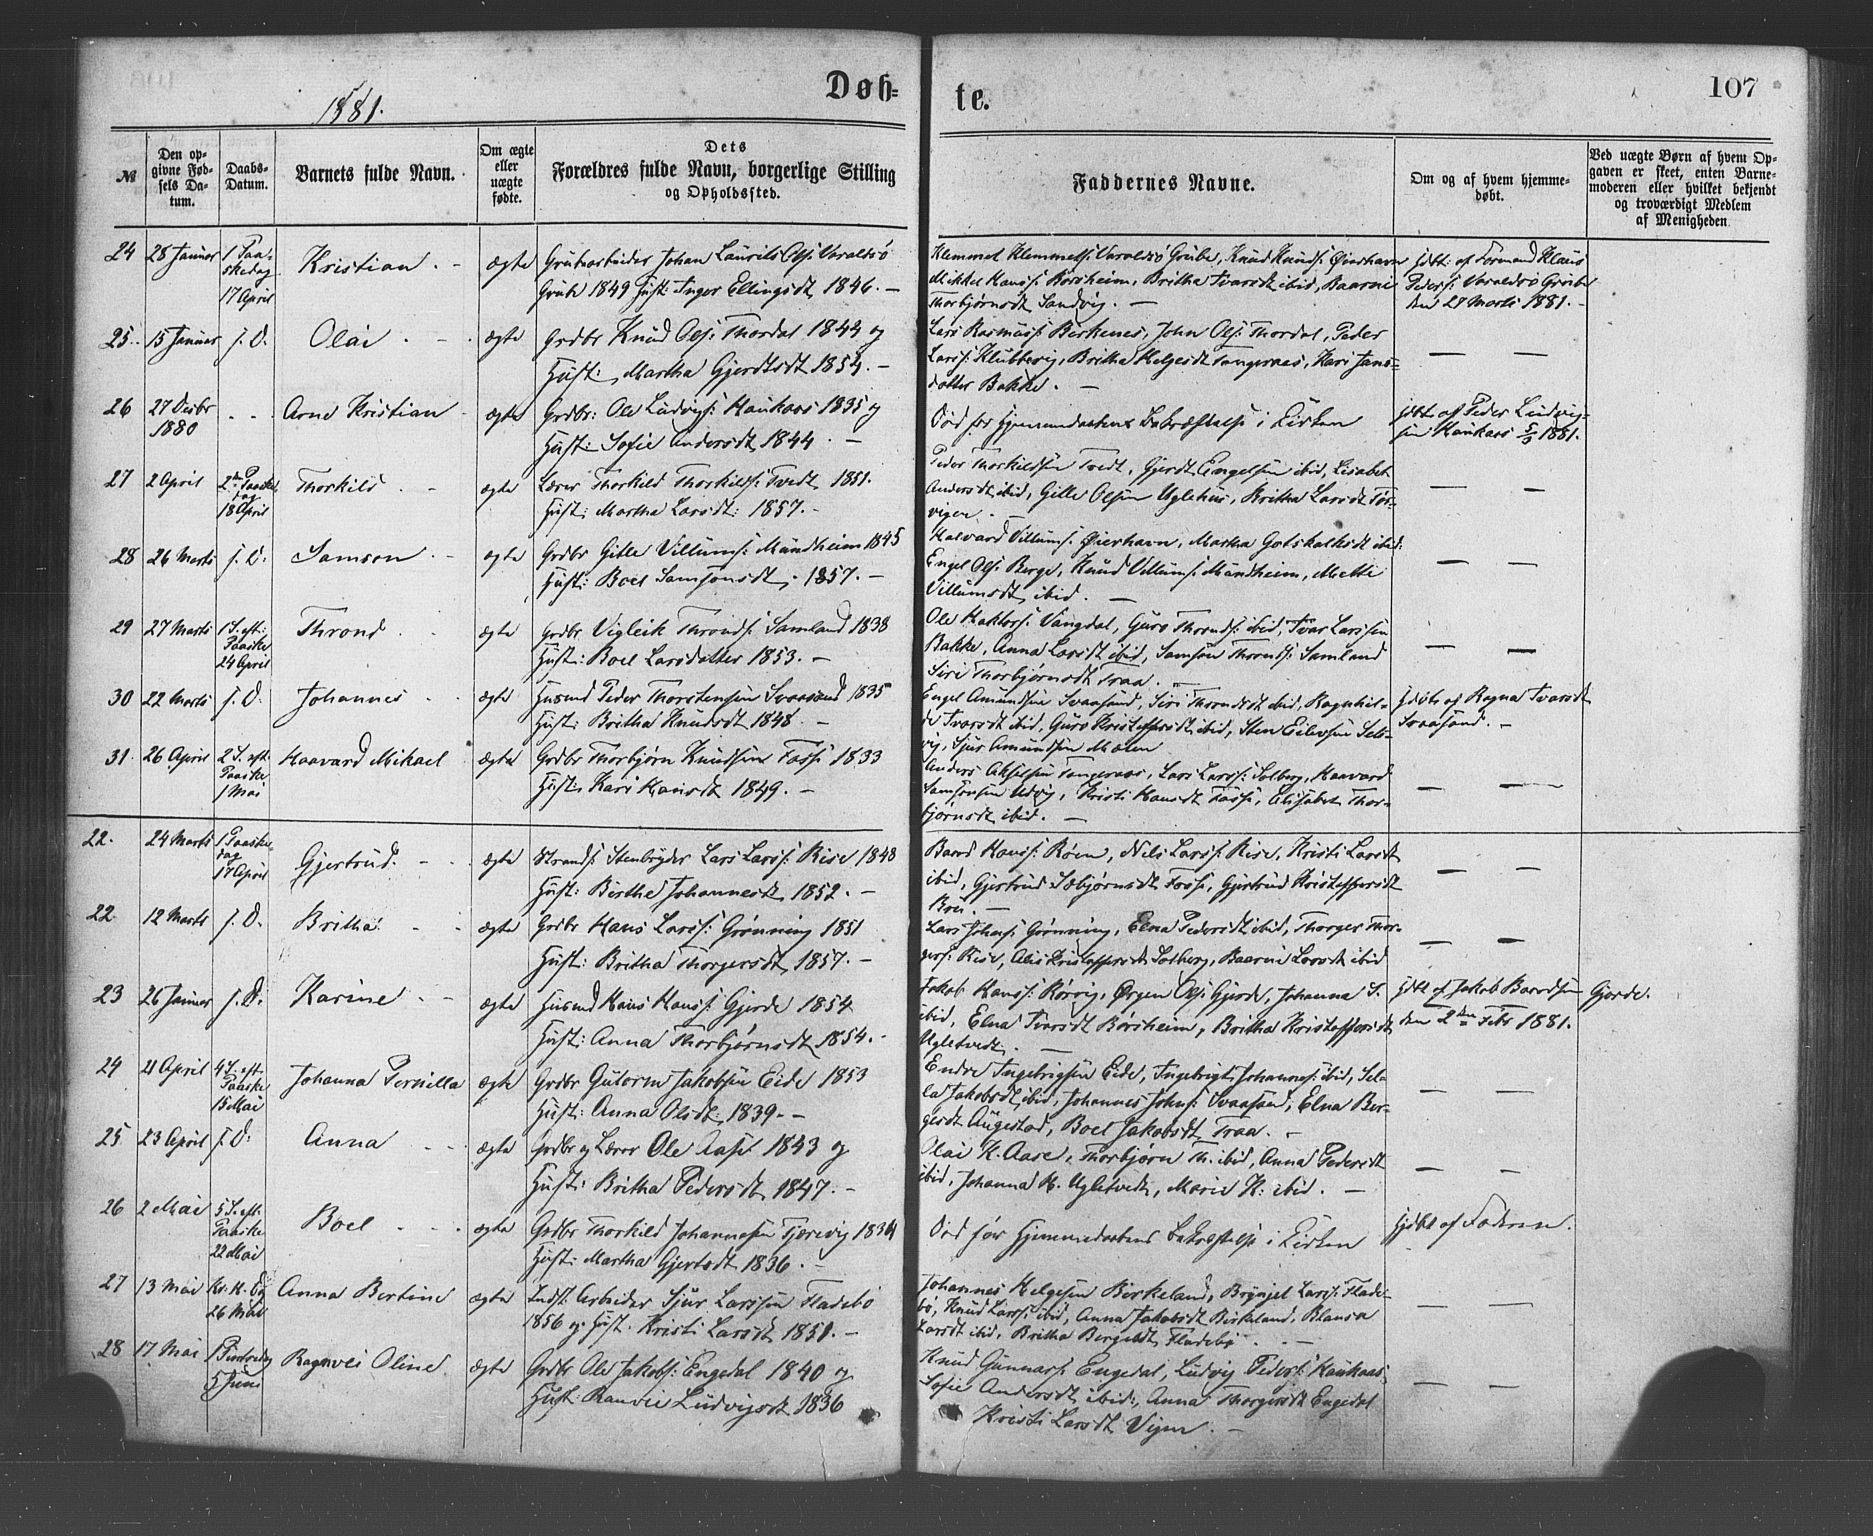 1881.
Døb-
te.
107
№
Den op-
givne Fød-
sels Da-
tum.
Daabs-
Datum.
Barnets fulde Navn.
Om ægte
eller
uægte
fødte.
Dets
Forældres fulde Navn, borgerlige Stilling
og Opholdssted.
Faddernes Navne.
Om og af hvem hjemme-
døbt.
Ved uægte Børn af hvem Op-
gaven er skeet, enten Barne-
moderen eller hvilket bekjendt
og troværdigt Medlem
af Menigheden
24 28 Januar 1 Paa-
skedag
17 April
Kristian. ægte
Grubearbeider Johan Laurits Ols: Varaldsø
Grube 1849 Hust: Inger Ellingsdt 1846. —
Klemmet Klemmets: Varaldsø Grube, Knud Knuds: Øierhavn
Mikkel Hanss: Rorsheim, Britha Ivarsdt ibid, Baarni
Thorbjørnsdt Sandvig. —
hjdbt: af Formand Klaus
Peders: Varaldsø Grube
den 27 Marts 1881. —
25. 15 Januar s. D. Olai. ægte
Grdbr Knud Ols: Thordal 1844 og
Hust: Martha Gjerdtsdt 1854. —
Lars Rasmuss: Birkenes, John Ols: Thordal, Peder
Larss: Klubbevig, Britha Helgesdt Tangeraas, Kari Jans-
datter Bakke. —
— —
26 27 Decbr
1880
Arne Kristian ægte
Grdbr: Ole Ludvigs: Haukaas 1835 og
Hust: Sofie Andersdt 1844. —
Død før Hjemmedaabens Bekræftelse i Kirken
hjdbt af Peder Ludvig-
sen Haukaas 5/3 1881.
27 2 April 2den Paaske
dag
18 April
Thorkild. ægte
Lærer Thorkild Thorkilds: Tvedt 1851.
Hust: Martha Larsdt: 1857. —
Peder Thorkildsen Tvedt, Gjerdt Engelsen ibid, Lisabet
Andersdt ibid, Gitle Olsen Uglehus, Britha Larsdt Tør-
vigen. —
— —
28 26 Marts s. D. Samson. ægte
Grdbr Gitle Villums: Mundheim 1845
Hust: Boel Samsonsdt. 1857. —
Halvard Villums: Øierhavn, Martha Gotskalksdt ibid:
Engel Ols: Berge, Knud Villums: Mundheim, Mette
Villumsdt ibid. —
— —
29 27 Marts 1 S. eft:
Paaske
24 April
Thrond. ægte
Grdbr Vigleik Thronds: Samland 1838
Hust: Boel Larsdatter 1853. —
Ole Haktors: Vangdal, Guro Thronds: ibid, Ivar Larssen
Bakke, Anna Larsdt ibid, Samson Thronds: Samland
Siri Thorbjørnsdt Traa. —
— —
30 22 Marts s. D. Johannes ægte
Husmd Peder Thorstensen Svaasand 1835
Hust: Britha Knudsdt 1848. —
Engel Amundsen Svaasand, Siri Throndsdt ibid, Ragnhil-
de Ivarsdt ibid, Guro Kristoffersdt ibid, Sten Eilevsen Sels-
vig, Sjur Amundsen Mælen
hjdbt af Ragna Ivarsdt
Svaasand. —
31. 26 April 2 S. eft.
Paaske
1 Mai
Haavard Mikael ægte
Grdbr Thorbjørn Knudsen Fosse 1833
Hust. Kari Hansdt 1849. —
Anders Akselsen Tangeraas, Lars Larss: Solberg, Haavard
Samsonsen Udvig, Kristi Hansdt Fosse, Elisabet Thor-
bjørnsdt ibid. —
— —
22. 24 Marts 1 Paaske-
dag
17 April
Gjertrud. ægte
Strands: Stenbryder Lars Larss: Rise 1848
Hust: Birthe Johannesdt 1852. —
Baard Hanss: Røen, Nils Larss: Rise, Kristi Larsdt
ibid, Gjertrud Sæbjørnsdt Fosse, Gjertrud Kristoffersdt
— —
22. 12 Marts s. D. Britha. ægte
Grdbr Hans Larss: Grønning 1851
Hust: Britha Thorgersdt 1857. —
Lars Johans: Grønning, Elna Pedersdt ibid, Thorger Thor-
gers: Rise, Alis Kristoffersdt Solberg, Baarni Larsdt ibid
— —
23 26 Januar s. D. Karine ægte
Husmd Hans Hanss: Gjerde 1854
Hust: Anna Thorbjørnsdt 1854. —
Jakob Hanss: Rørvig, Ørgen Ols: Gjerde, Johanna S.
ibid, Elna Ivarsdt Børsheim, Britha Kristoffersdt
Ugletvedt. —
hjdbt af Jakob Baardsen Gjerde.
den 2den Febr 1881.
24 21 April 4 S. eft.
Paaske
15 Mai
Johanna Pernilla ægte
Grdbr Gutorm Jakobsen Eide 1853
Hust: Anna Olsdt: 1839. —
Endre Ingebrigtsen Eide, Ingebrigt Johannes: ibid, Sel-
la Jakobsdt ibid, Johannes Johns: Svaasand, Elna Ber-
gesdt Augestad, Boel Jakobsdt Traa. —
— —
25 23 April s. D: Anna ægte
Grdbr og Lærer Ole Aase 1843 og
Hust: Britha Pedersdt 1847. —
Olai K. Aase, Thorbjørn Th. ibid, Anna Pedersdt
ibid, Johanna H. Ugletvedt, Marie K: ibid. —
— —
26 2 Mai 5 S. eft.
Paaske
22 Mai
Boel ægte
Grdbr Thorkild Johannesen Tjerevig 1834
Hust: Martha Gjertsdt 1836. —
Død før Hjemmedaabens Bekræftelse i Kirken
hjdbt af Faderen.
27 13 Mai Kr. H. Dg
26 Mai
Anna Bertine ægte
Indst: Arbeider Sjur Larssen Fladebø
1856 og Hust. Kristi Larsdt 1851. —
Johannes Helgesen Birkeland, Brynjel Larss: Flade-
bø, Knud Larss: ibid, Anna Jakobsdt Birkeland, Blansa
Larsdt ibid, Britha Bergesdt Fladebø —
— —
28 17 Mai 1 Pintsedag
5 Juni
Ragnvei Oline ægte
Grdbr Ole Jakobs: Engedal 1840 og
Hust Ranvei Ludvigsdt 1836
Knud Gunnars: Engedal, Ludvig Peders: Haukaas,
Sofie Andersdt ibid:, Anna Thorgersdt Engedal
Kristi Larsdt Vigen. —
— —